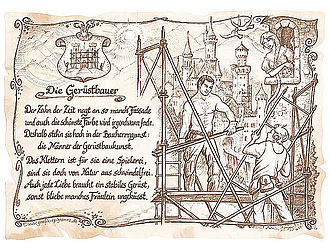 Die Gerüstbauer
Der Zahn der Zeit nagt an so manch Fassade
und auch die schönste Farbe wird irgendwann fade.
Deshalb stehn sie hoch in der Bauherrngunst:
die Männer der Gerüstbaukunst.
Das Klettern ist für sie eine Spielerei,
sind sie doch von Natur aus schwindelfrei.
Auch jede Liebe braucht ein stabiles Gerüst,
sonst bliebe manches Fräulein ungeküsst.